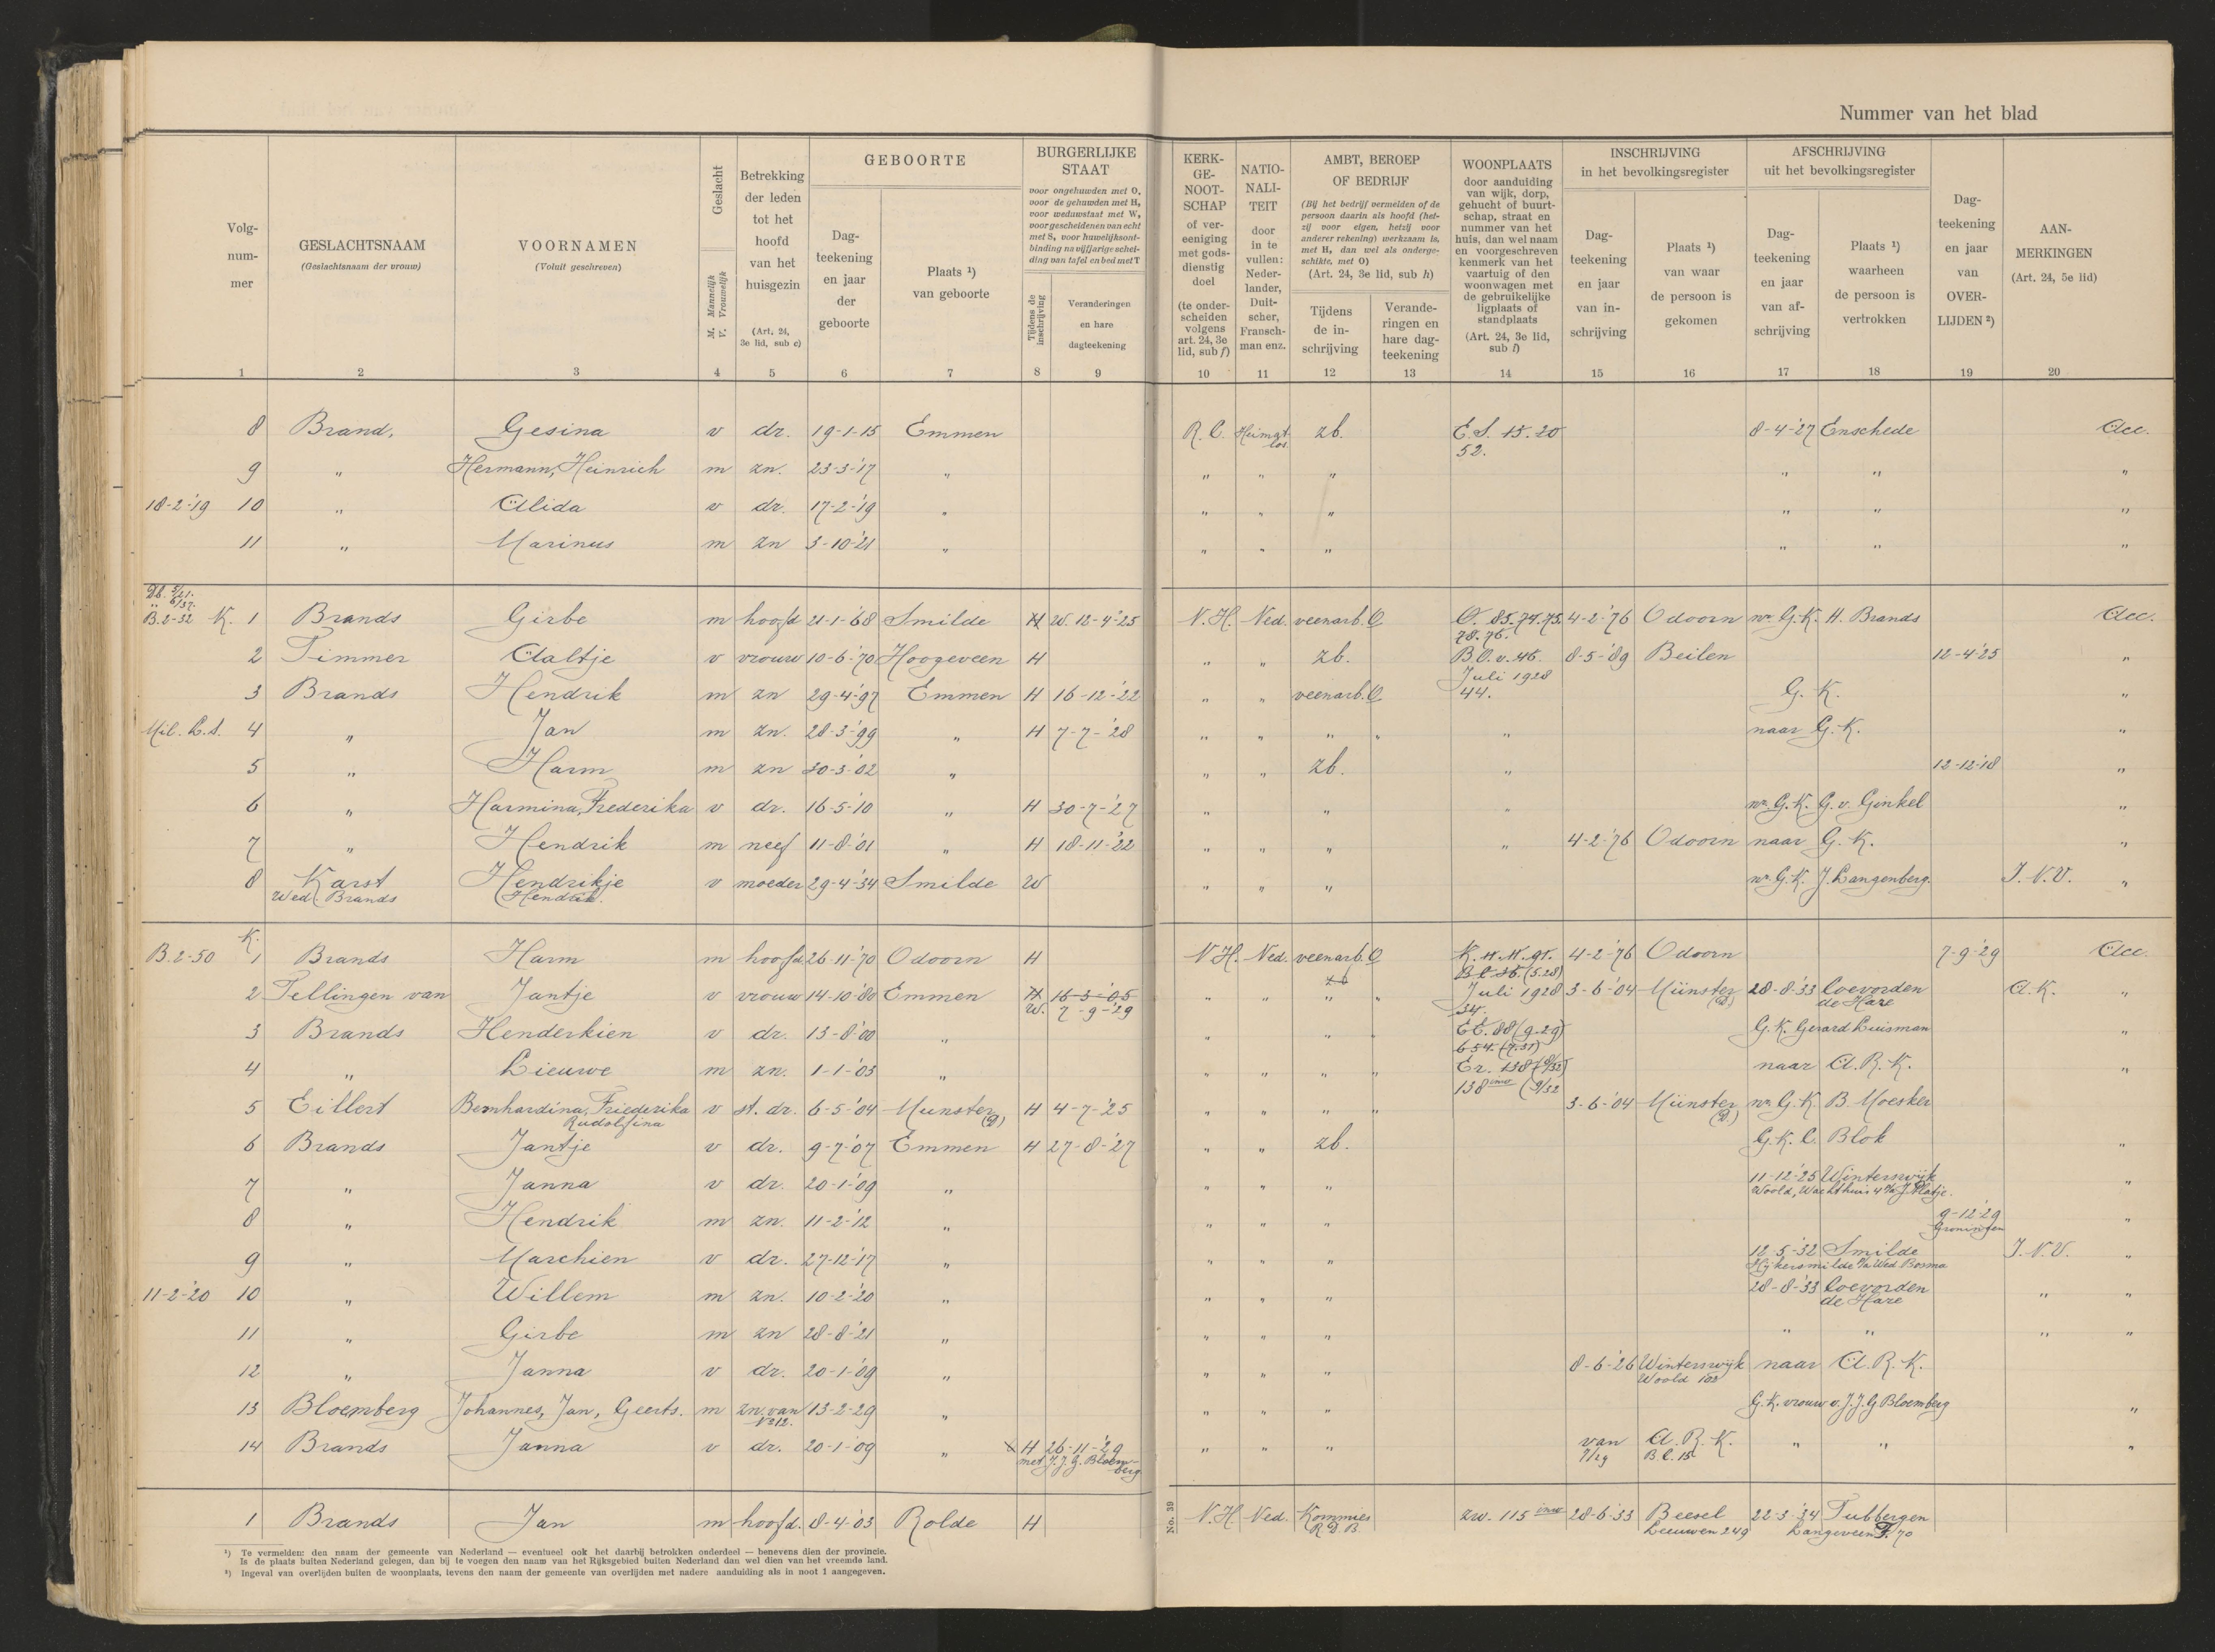 Nummer van het blad
Volg-
num-
mer
GESLACHTSNAAM
(Geslachtsnaam der vrouw)
VOORNAMEN
(Voluit geschreven)
Geslacht
M. Mannelijk
V. Vrouwelijk
Betrekking
der leden
tot het
hoofd
van het
huisgezin
(Art. 24,
3e lid, sub c)
GEBOORTE
Dag-
teekening
en jaar
der
geboorte
Plaats ¹)
van geboorte
BURGERLIJKE
STAAT
voor ongehuwden met O,
voor de gehuwden met H,
voor weduwstaat met W,
voor gescheidenen van echt
met S, voor huwelijksont-
binding na vijfjarige schei-
ding van tafel en bed met T
Tijdens de
inschrijving
Veranderingen
en hare
dagteekening
KERK-
GE-
NOOT-
SCHAP
of ver-
eeniging
met gods-
dienstig
doel
(te onder-
scheiden
volgens
art. 24, 3e
lid, sub f)
NATIO-
NALI-
TEIT
door
in te
vullen:
Neder-
lander,
Duit-
scher,
Fransch-
man enz.
AMBT, BEROEP
OF BEDRIJF
(Bij het bedrijf vermelden of de
persoon daarin als hoofd (het-
zij voor eigen, hetzij voor
anderer rekening) werkzaam is,
met H, dan wel als onderge-
schikte, met O)
(Art. 24, 3e lid, sub h)
Tijdens
de in-
schrijving
Verande-
ringen en
hare dag-
teekening
WOONPLAATS
door aanduiding
van wijk, dorp,
gehucht of buurt-
schap, straat en
nummer van het
huis, dan wel naam
en voorgeschreven
kenmerk van het
vaartuig of den
woonwagen met
de gebruikelijke
ligplaats of
standplaats
(Art. 24, 3e lid,
sub i)
INSCHRIJVING
in het bevolkingsregister
Dag-
teekening
en jaar
van in-
schrijving
Plaats ¹)
van waar
de persoon is
gekomen
AFSCHRIJVING
uit het bevolkingsregister
Dag-
teekening
en jaar
van af-
schrijving
Plaats ¹)
waarheen
de persoon is
vertrokken
Dag-
teekening
en jaar
van
OVER-
LIJDEN ²)
AAN-
MERKINGEN
(Art. 24, 5e lid)
1 2 3 4 5 6 7 8 9 10 11 12 13 14 15 16 17 18 19 20
8 Brand. Gesina v dr. 19-1-15 Emmen R.C. Heimat- zb. E.S. 15.20 8-4-'27 Enschede Acc.
los. 52.
9 " Hermann, Heinrich m zn. 23-3-'17 " " " " " " "
18-2-'19 10 " Alida v dr. 17-2-'19 " " " " " " "
11 " Marinus m zn 3-10-'21 " " " " " " "
B.2-32 K. 1 Brands Girbe m hoofd 21-1-'68 Smilde H W. 12-4-'25 N.H. Ned. veenarb. O O. 85.74.75. 4-2-'76 Odoorn nr. G.K. H. Brands Acc.
78.76.
2 Timmer Aaltje v vrouw 10-6-'70 Hoogeveen H " " zb. B.O.v.46. 8-5-'89 Beilen 12-4-'25 "
Juli 1928
3 Brands Hendrik m zn 29-4-'97 Emmen H 16-12-'22 " " veenarb. O 44. G.K. "
Mil. L.S. 4 " Jan m zn. 28-3-'99 " H 7-7-'28 " " " " " naar G.K. "
5 " Harm m zn 30-3-'02 " " " zb. " 12-12-'18 "
6 " Harmina, Frederika v dr. 16-5-'10 " H 30-7-'27 " " " nr. G.K. G. v. Ginkel "
7 " Hendrik m neef 11-8-'01 " H 18-11-'22 " " " " 4-2-'76 Odoorn naar G.K. "
8 Karst Hendrikje v moeder 29-4-'34 Smilde W " " " nr. G.K. J. Langenberg. I.N.V. "
Wed. Brands (Hendrik.
K.
B.2-50 1 Brands Harm m hoofd 26-11-'70 Odoorn H N.H. Ned. veenarb. O 4-2-'76 Odoorn 7-9-'29 Acc.
2 Tellingen van Jantje v vrouw 14-10-'80 Emmen H 16-3-'05 " " " " Juli 1928 3-6-'04 Münster 28-8-'33 Coevorden A.K. "
W. 7-9-'29 34. (D) de Hare
3 Brands Henderkien v dr. 13-8-'00 " " " " EE. 88 (9-29) G.K. Gerard Luisman "
654. (7.31)
4 " Lieuwe m zn. 1-1-'03 " " " " " naar A.R.K. "
5 Eillert Bernhardina, Friederika v st. dr. 6-5-'04 Munster H 4-7-'25 " " " " 3-6-'04 Münster nr. G.K. B. Moesker
Rudolfina (D) (D)
6 Brands Jantje v dr. 9-7-'07 Emmen H 27-8-'27 " " zb. G.K. C. Blok "
7 " Janna v dr. 20-1-'09 " " " " 11-12-'25 Winterswijk "
Woold, Wachthuis 4 J. Platje.
8 " Hendrik m zn. 11-2-'12 " " " " 9-12-'29 "
Groningen
9 " Marchien v dr. 27-12-'17 " " " " 12-5-'32 Smilde I.N.V. "
Hijkersmilde Wed. Bosma
11-2-'20 10 " Willem m zn. 10-2-'20 " " " " 28-8-'33 Coevorden " "
de Hare
11 " Girbe m zn 28-8-'21 " " " " " " " "
12 " Janna v dr. 20-1-'09 " " " " 8-6-'26 Winterswijk naar A.R.K.
Woold 102
13 Bloemberg Johannes, Jan, Geerts. m zn. van 13-2-29 " " " " G.K. vrouw v. J.J.G Bloemberg "
No 12.
14 Brands Janna v dr. 20-1-'09 " H 26-11-'29 " " " van A.R.K. " " "
met J.J.G. Bloem- 7/29 B.C. 15
berg
1 Brands Jan m hoofd. 8-4-'03 Rolde H No. 39 N.H Ned. Kommies zw. 115 28-6-'33 Beesel 22-3-'34 Tubbergen
R.D.B. Leeuwen 249 Langeveen 70
¹) Te vermelden: den naam der gemeente van Nederland — eventueel ook het daarbij betrokken onderdeel — benevens dien der provincie.
Is de plaats buiten Nederland gelegen, dan bij te voegen den naam van het Rijksgebied buiten Nederland dan wel dien van het vreemde land.
²) Ingeval van overlijden buiten de woonplaats, tevens den naam der gemeente van overlijden met nadere aanduiding als in noot 1 aangegeven.